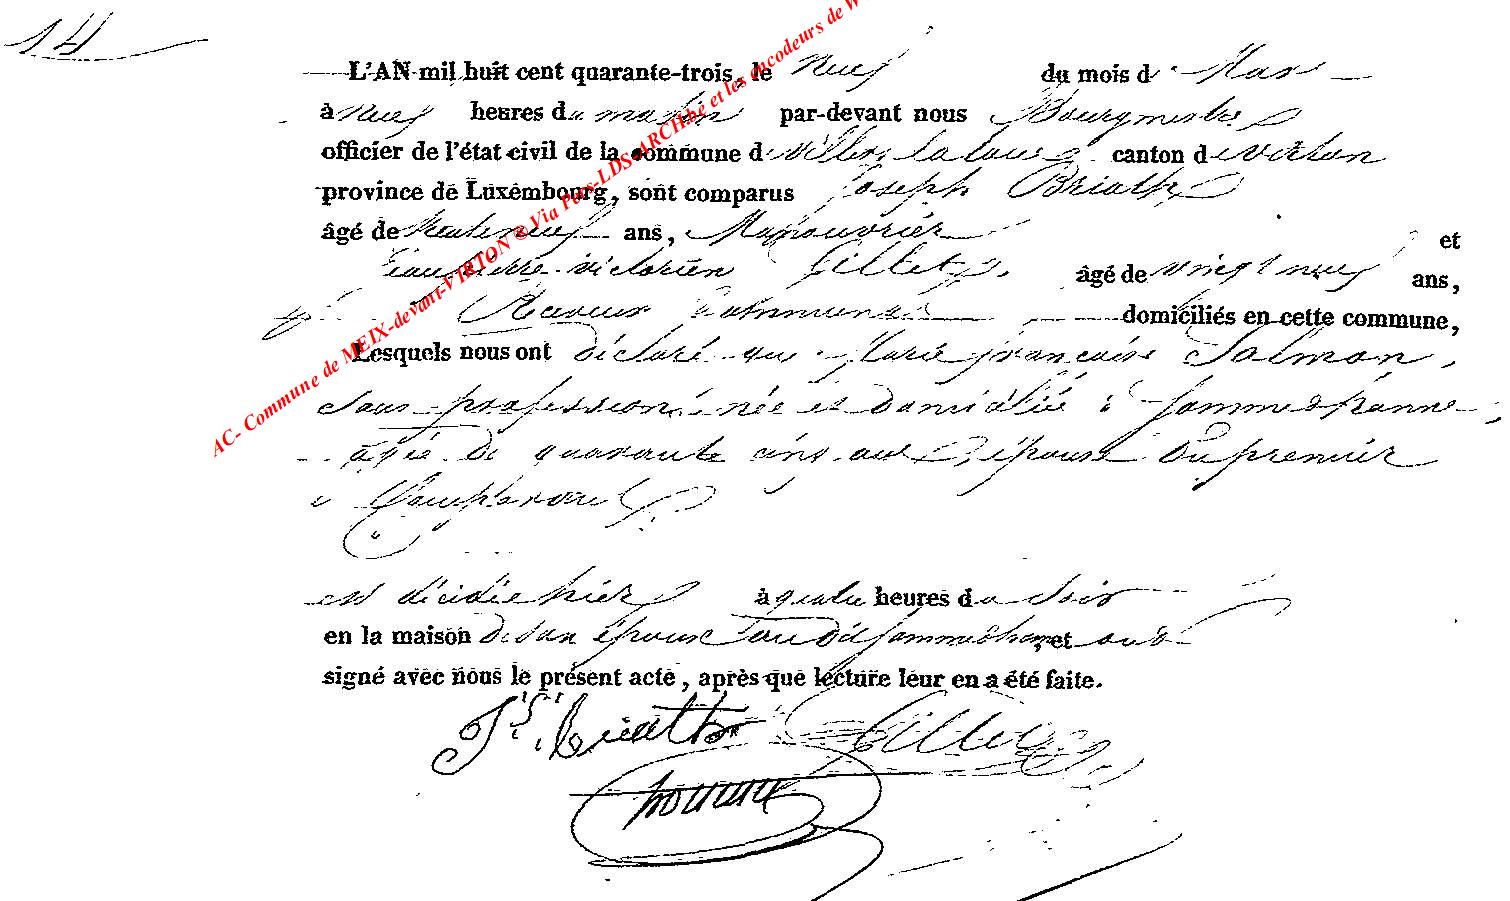 14
L'AN mil huit cent quarante-trois, le neuf du mois de Mars
à neuf heures du matin par-devant nous Bourgmestre
officier de l'état civil de la commune de Villers la loue canton de Virton
province de Luxembourg, sont comparus Joseph Briath
âgé de ans, Manouvrier et
Jean pierre victorien Gillet âgé de vingt neuf ans,
Receveur Communal domiciliés en cette commune,
Lesquels nous ont déclaré que Marie françoise Salmon,
sans profession, née et domiciliée à
âgée de quarante cinq ans, épouse du premier
Comparant
est décédée hier à quatre heures du soir
en la maison de son époux au dit et ont
signé avec nous le présent acte, après que lecture leur en a été faite.
Briath Gillet
AC- Commune de MEIX-devant-VIRTON ® Via Pars-LDS-ARCH.be et les encodeurs de